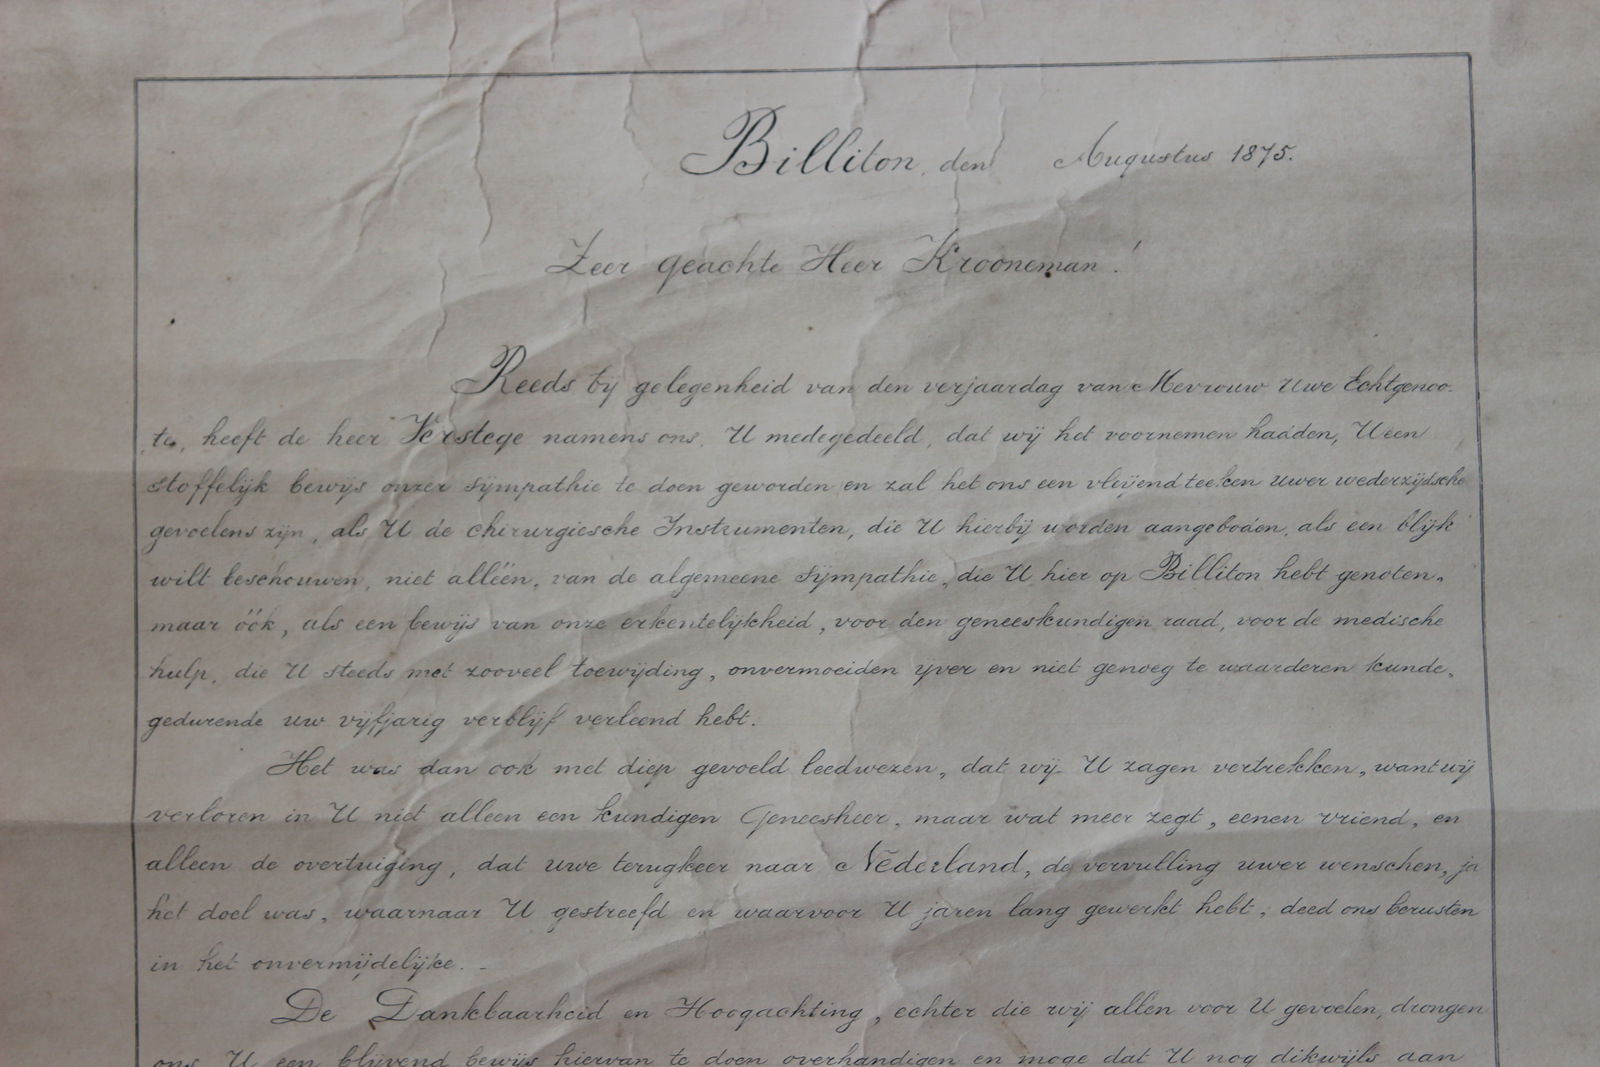 Billiton, den Augustus 1875.
Zeer geachte Heer Krooneman!
Reeds bij gelegenheid van den verjaardag van Mevrouw Uwe Echtgenoo-
te, heeft de heer Verstege namens ons, U medegedeeld, dat wij het voornemen hadden, U een
stoffelijk bewijs onzer sijmpathie te doen geworden en zal het ons een vleijend teeken uwer wederzijdsche
gevoelens zijn, als U de chirurgiesche Instrumenten, die U hierbij worden aangeboden, als een blijk
wilt beschouwen, niet alléén, van de algemeene sijmpathie, die U hier op Billiton hebt genoten,
maar óók, als een bewijs van onze erkentelijkheid, voor den geneeskundigen raad, voor de medische
hulp, die U steeds met zooveel toewijding, onvermoeiden ijver en niet genoeg te waarderen kunde,
gedurende uw vijfjarig verblijf verleend hebt.
Het was dan ook met diep gevoeld leedwezen, dat wij U zagen vertrekken, want wij
verloren in U niet alleen een kundigen Geneesheer, maar wat meer zegt, eenen vriend, en
alleen de overtuiging, dat uwe terugkeer naar Nederland, de vervulling uwer wenschen, ja
het doel was, waarnaar U gestreefd en waarvoor U jaren lang gewerkt hebt, deed ons berusten
in het onvermijdelijke. -
De Dankbaarheid en Hoogachting, echter die wij allen voor U gevoelen, drongen
ons U een blijvend bewijs hiervan te doen overhandigen en moge dat U nog dikwijls aan